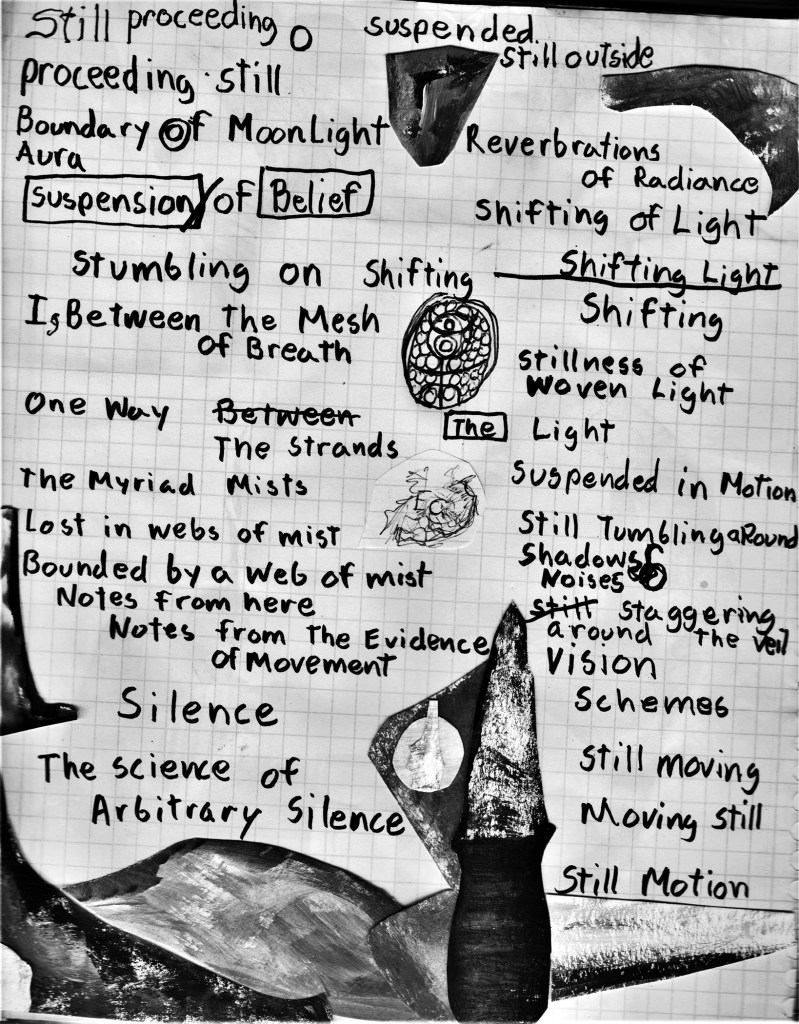 Still proceeding
proceeding still
Boundary Of MoonLight
Aura
Suspension/of Belief
Stumbling on Shifting
Is Between The Mesh
of Breath
One Way Between
The Strands
The Myriad Mists
Lost in webs of mist
Bounded by a web of mist
Notes from here
Notes from The Evidence
of Movement
Silence
The science of
Arbitrary Silence
suspended.
still outside
Reverbrations
of Radiance
Shifting of Light
Shifting Light
Shifting
stillness of
Woven Light
The Light
Suspended in Motion
Still Tumbling aRound
Shadows of
Noises
still staggering
around the veil
Vision
Schemes
Still moving
Moving still
Still Motion